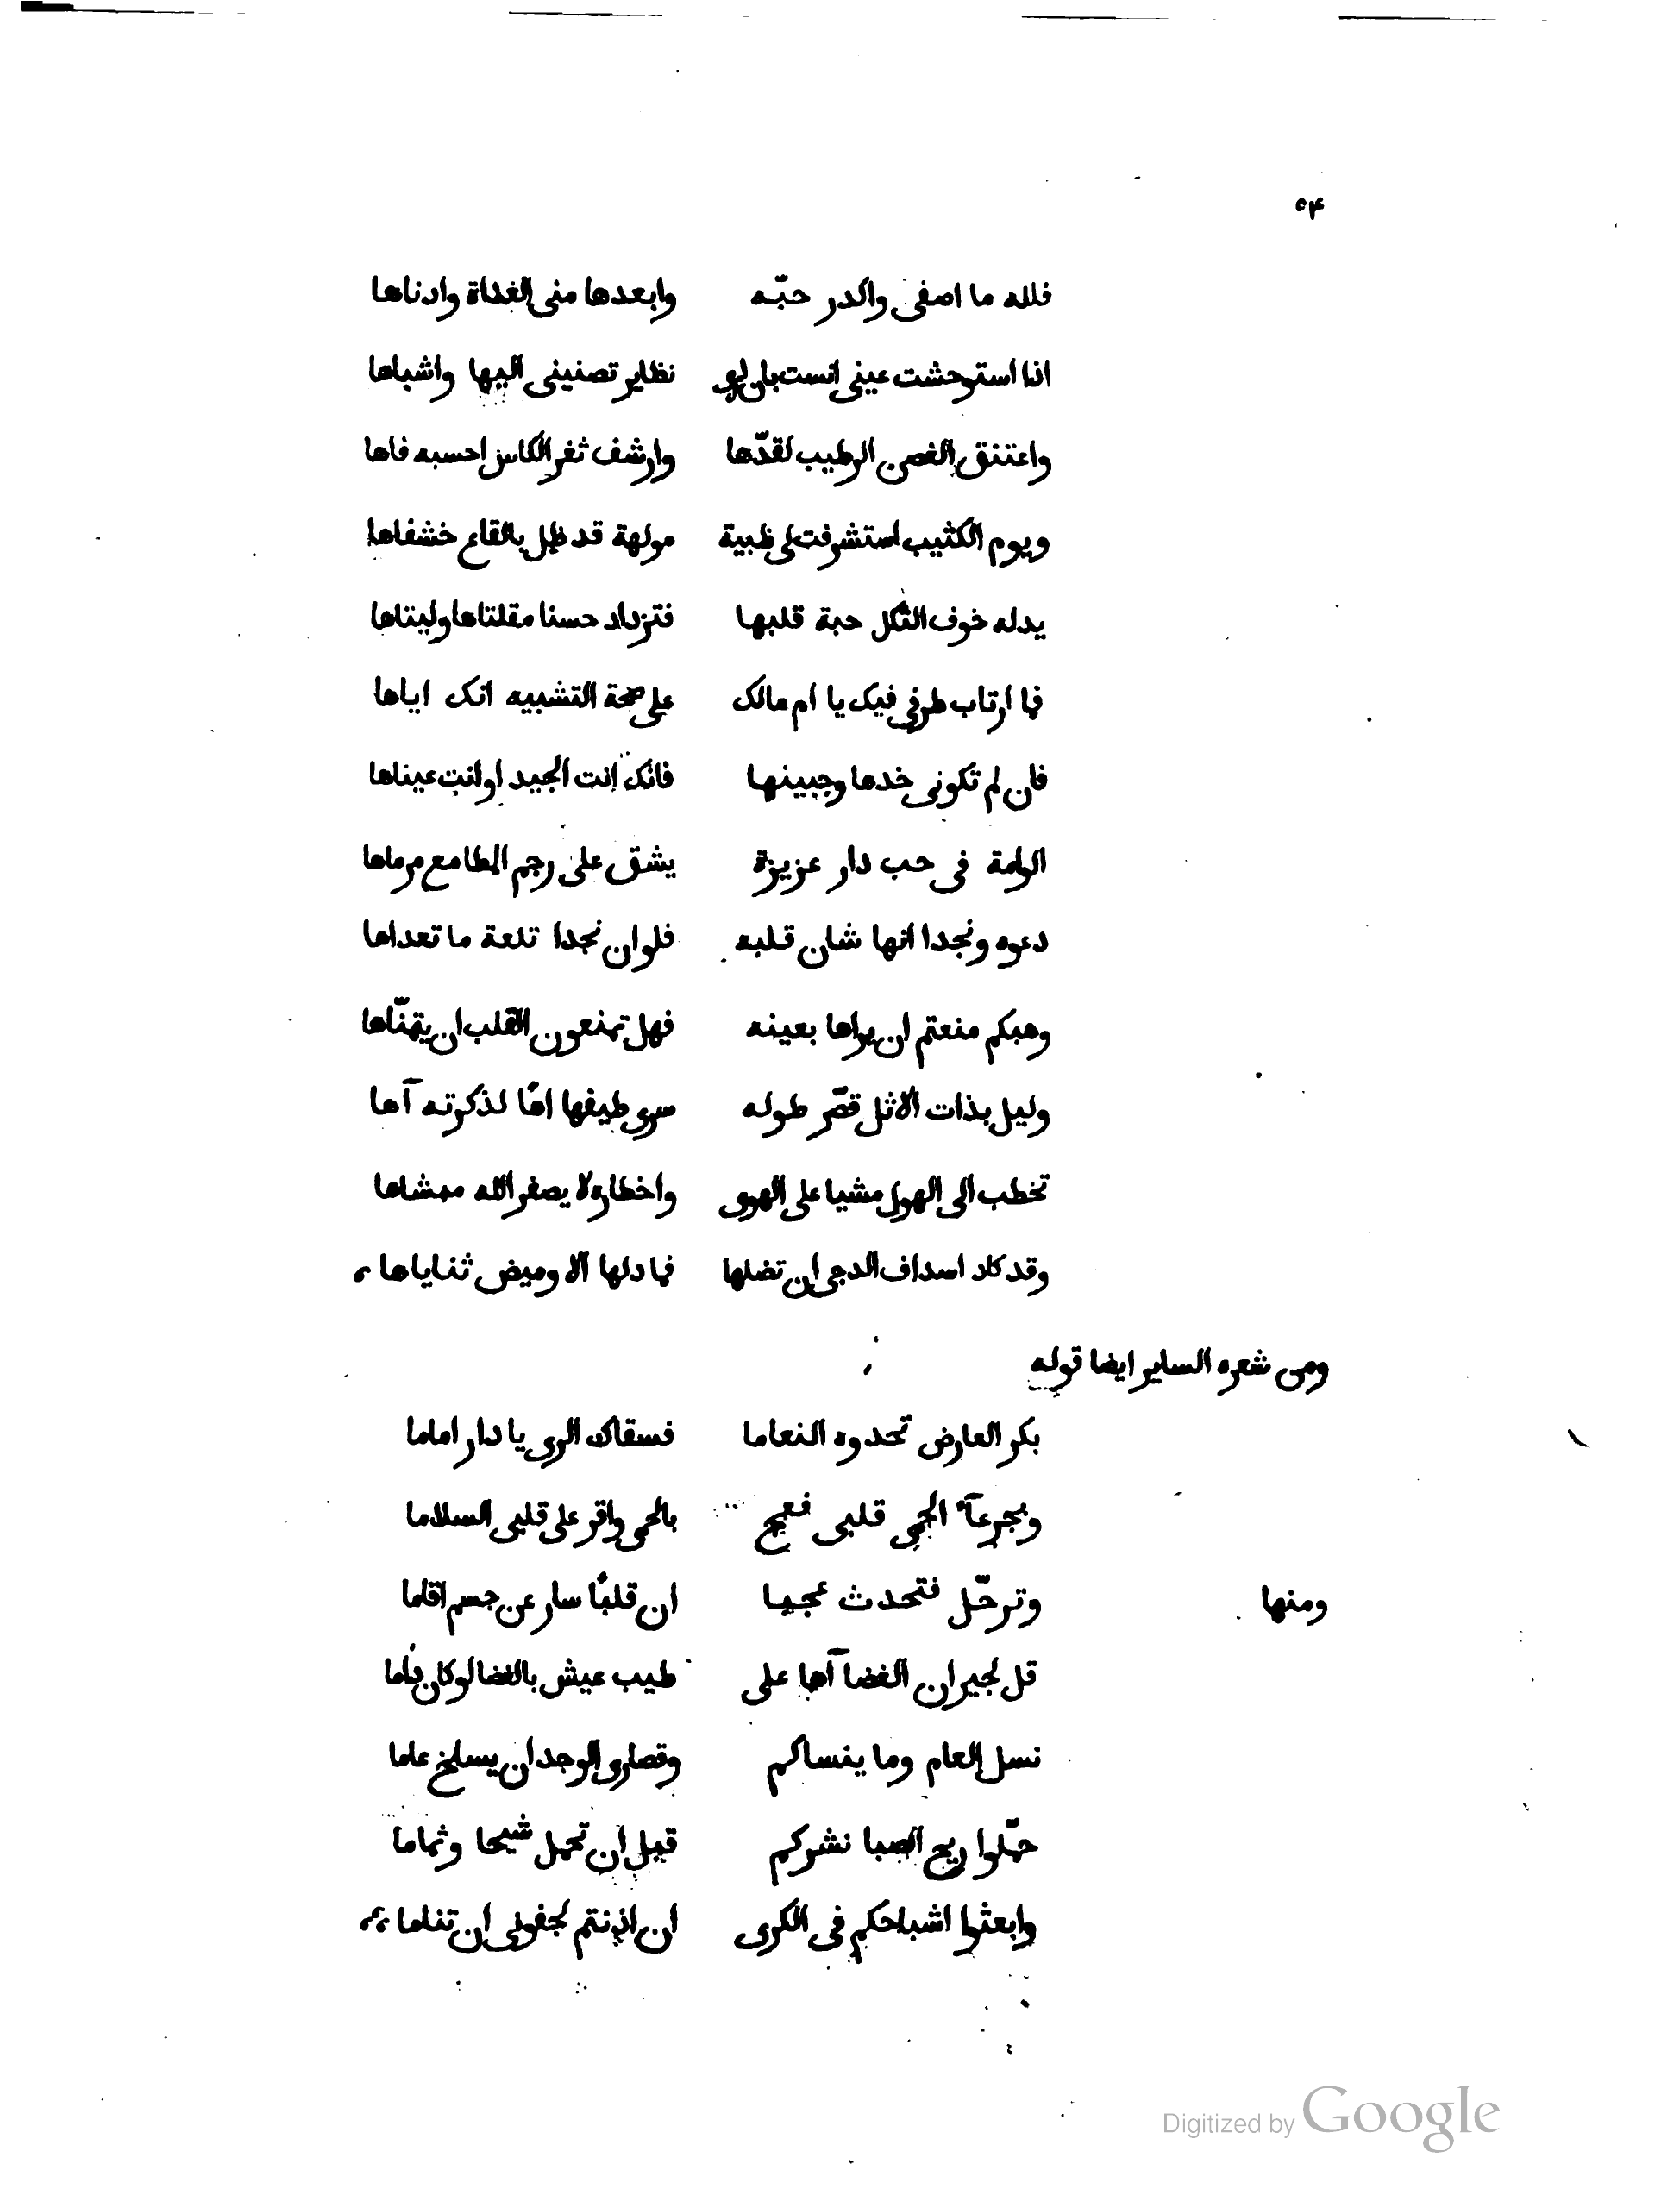 ٥٤
فلله ما اصفى واكدر حبّه وابعدها منى الغداة وادناها
اذا استوحشت عينى انست بان ارى نظاير تصنينى اليها واشباها
واعتنق الغصن الرطيب لقدّها وارشف ثغر الكاس احسبه فاها
ويوم الكثيب استشرفت لى ظبية مولهة قد ظل بالقاع خشفاها
يدله خوف الثكل حبة قلبها فتزداد حسنا مقلتاها وليتاها
فما ارتاب طرفى فيك يا ام مالك على صحة التشبيه انك اياها
فان لم تكونى خدها وجبينها فانك انت الجيد او انت عيناها
الوامة فى حب دار عزيزة يشق على رجم المطامع مرماها
دعوه ونجدا انها شان قلبه فلو ان نجدا تلعة ما تعداها
وهبكم منعتم ان يراها بعينه فهل تمنعون القلب ان يتمنّاها
وليل بذات الاثل قصّر طوله سرى طيفها اهًا لذكرته آها
تخطب الى الهول مشيا على الهوى واخطاره لا يصغر الله ممشاها
وقد كاد اسداف الدجى ان تضلها فما دلها الا وميض ثناياها
ومن شعره الساير ايضا قوله
بكر العارض تحدوه النعاما فسقاك الرى يا دار اماما
وبجرعآء الحمى قلبى فعج بالحمى واقر على قلبى السلاما
ومنها وترحّل فتحدث عجبا ان قلبًا سار عن جسم اقاما
قل لجيران الغضا آها على طيب عيش بالغضا لو كان داما
نسل العام وما ينساكم وقصارى الوجد ان يسلخ عاما
حمّلوا ريح الصبا نشركم قبل ان تحمل شيحا وثماما
وابعثوا اشباحكم فى الكرى ان اذنتم لجفونى ان تناما
Digitized by Google